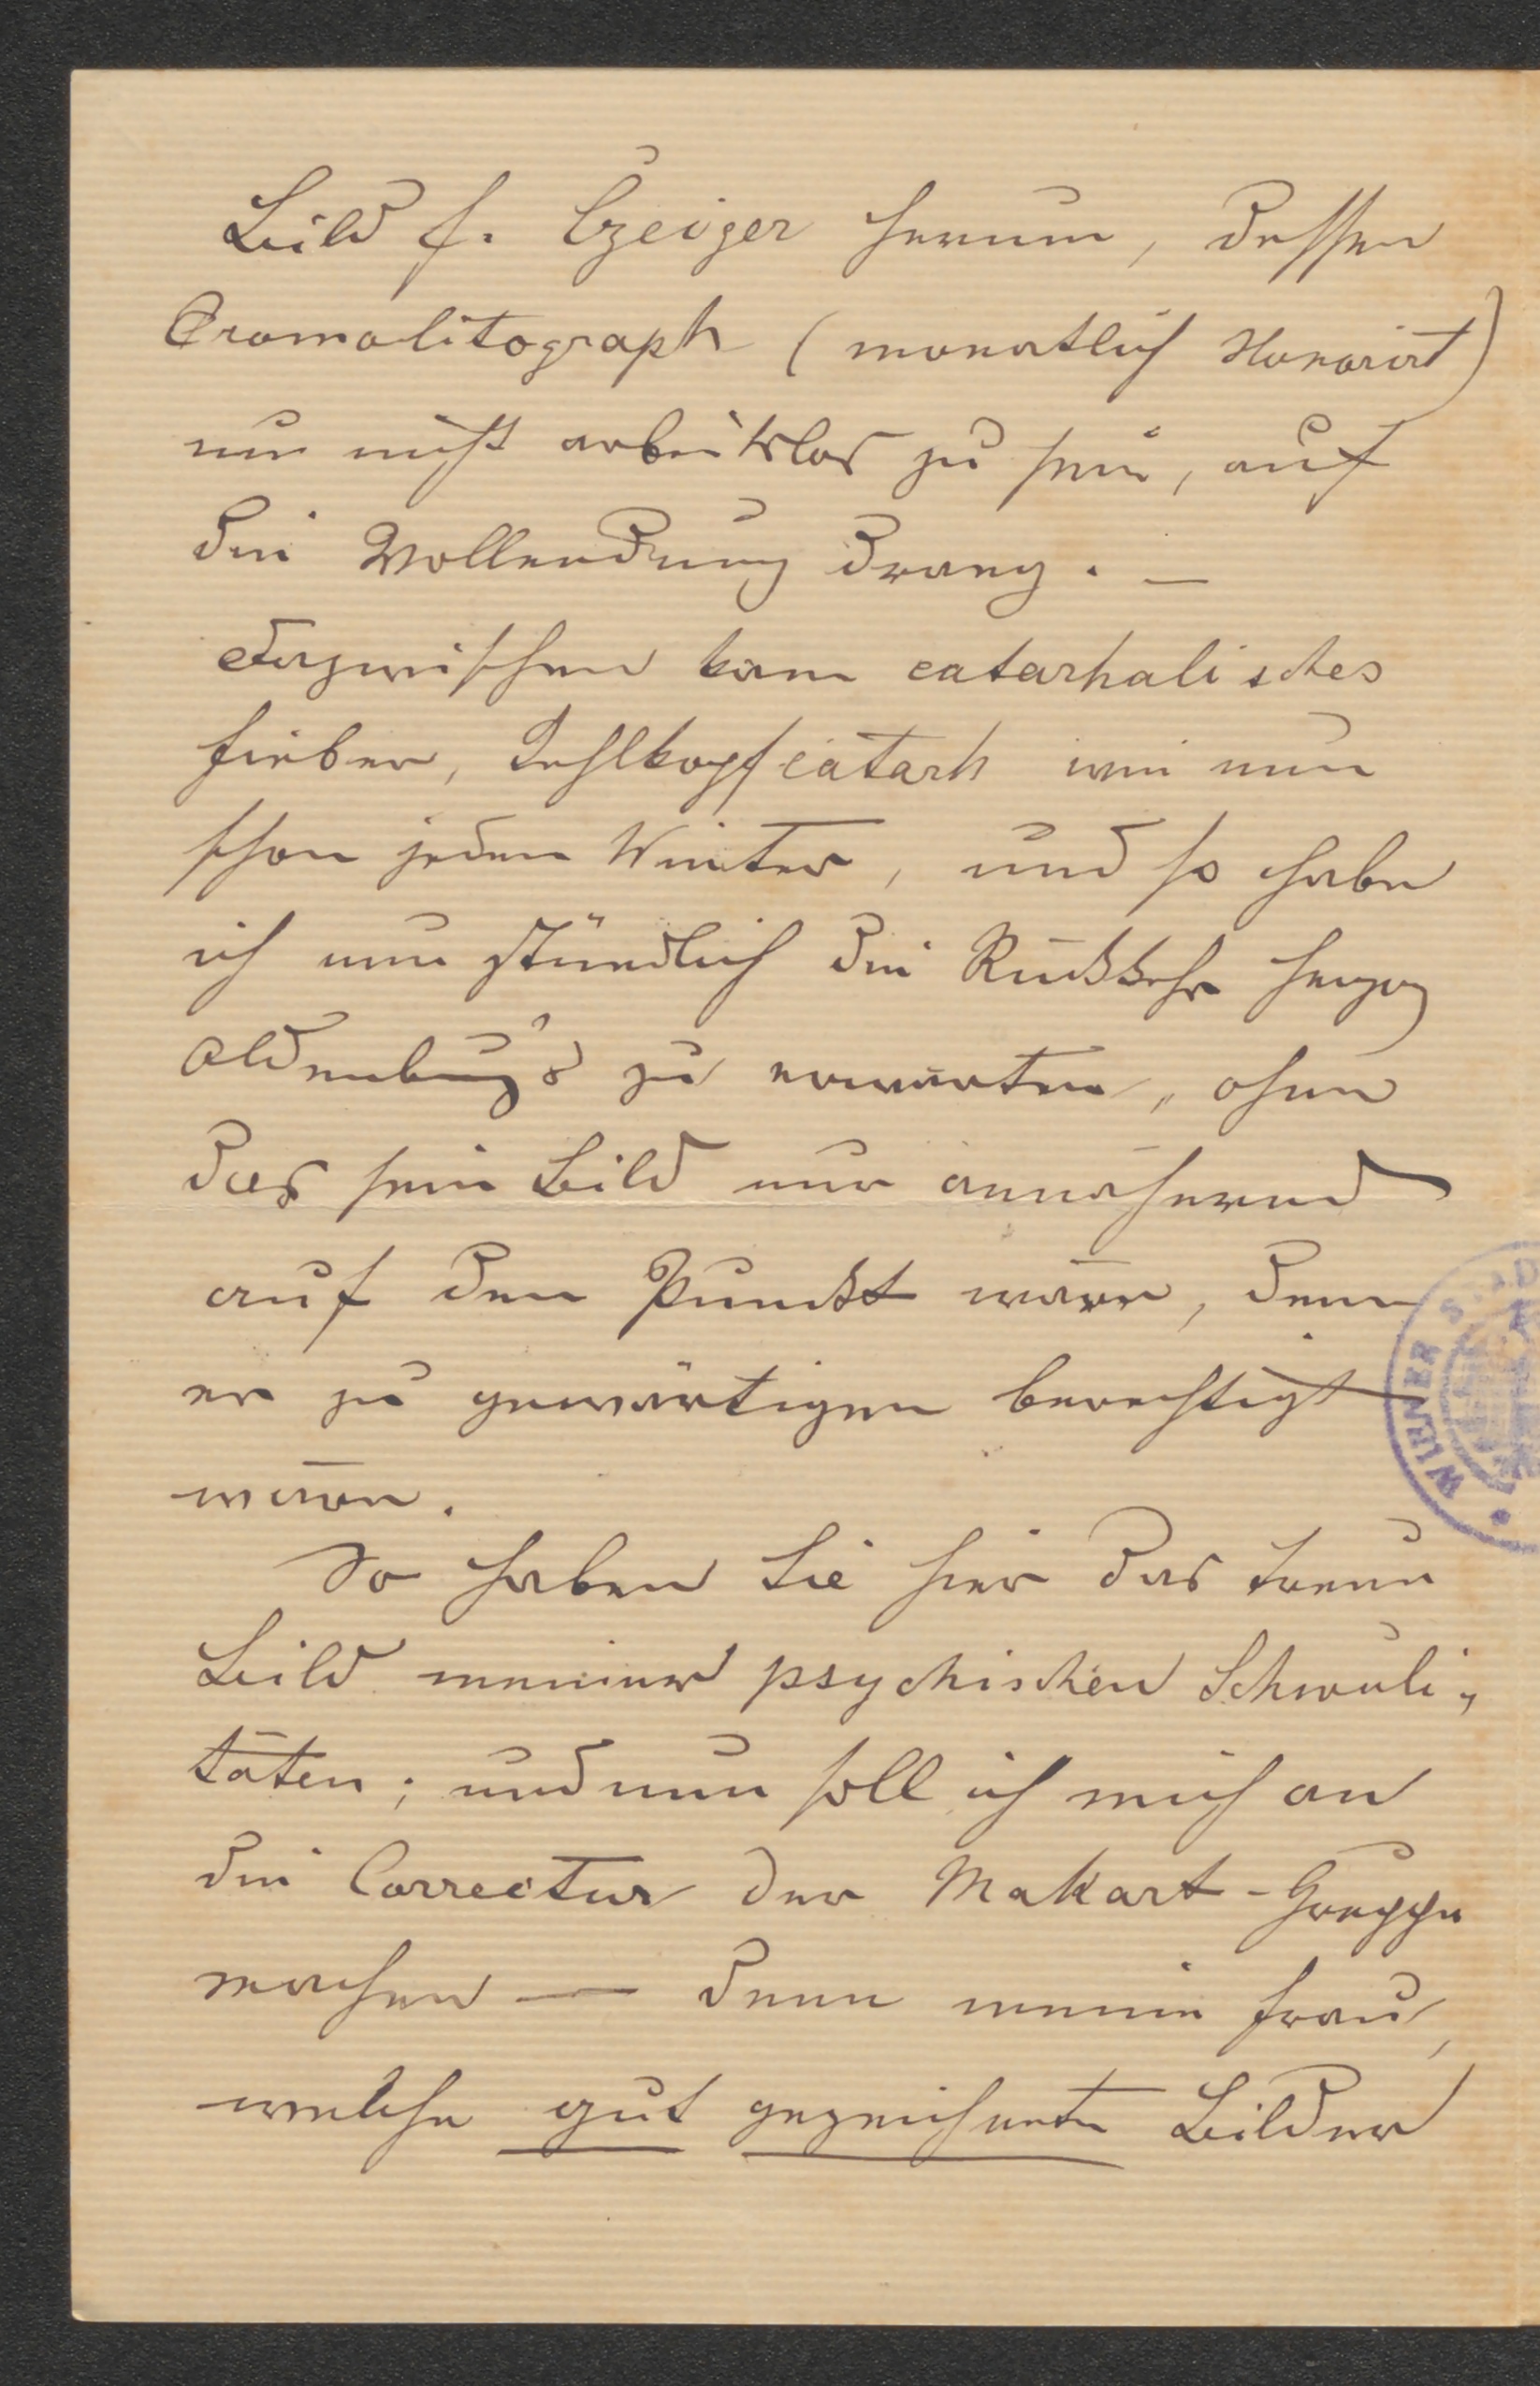 Bild f. Czeiger herum, dessen
Cromolitograph (monatlich Honorirt)
um nicht arbeitslos zu sein, auf
die Vollendung drang. —
Dazwischen kam catarhalisches
Fieber, Kehlkopfcatarh wie nun
schon jeden Winter, und so habe
ich nun stündlich die Rückkehr Herzog
Oldenburg's zu erwarten, ohne
das sein Bild nur annähernd
auf den Punckt wäre, den
er zu gewärtigen berechtigt
wäre.
So haben Sie hier das treue
Bild meiner psychischen Schwuli-
täten; und nun soll ich mich an
die Correctur der Makart-Gruppe
machen — denn meine Frau,
welche gut gezeichnete Bilder
WIENER